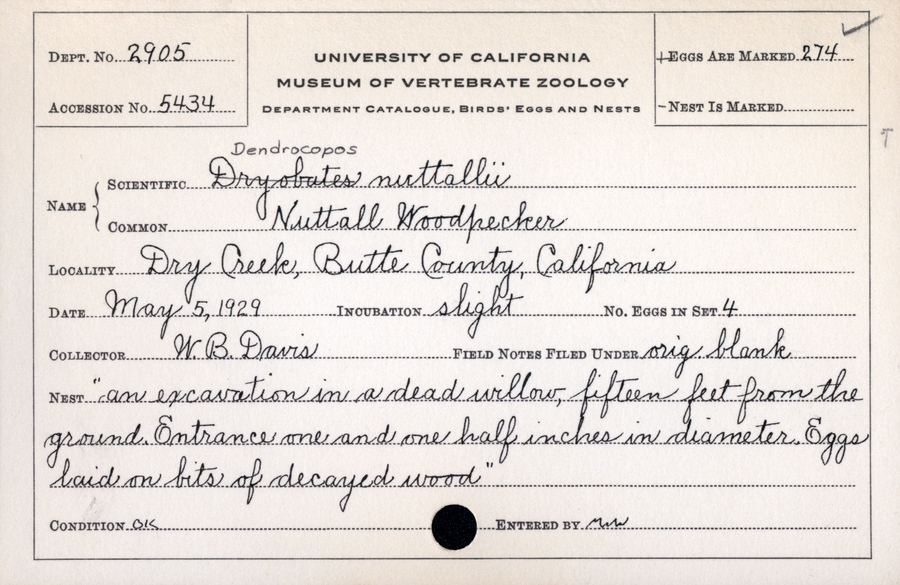 Dept. No. 2905
Accession No. 5434
UNIVERSITY OF CALIFORNIA
MUSEUM OF VERTEBRATE ZOOLOGY
Department Catalogue, Birds' Eggs and Nests
+Eggs Are Marked 274
-Nest Is Marked
Dendrocopos
Name { Scientific Dryobates nuttallii
Common Nuttall Woodpecker
Locality Dry Creek, Butte County, California
Date May 5, 1929 Incubation slight No. Eggs in Set 4
Collector W. B. Davis Field Notes Filed Under orig. blank
Nest "an excavation in a dead willow, fifteen feet from the
ground. Entrance one and one half inches in diameter. Eggs
laid on bits of decayed wood"
Condition OK Entered by